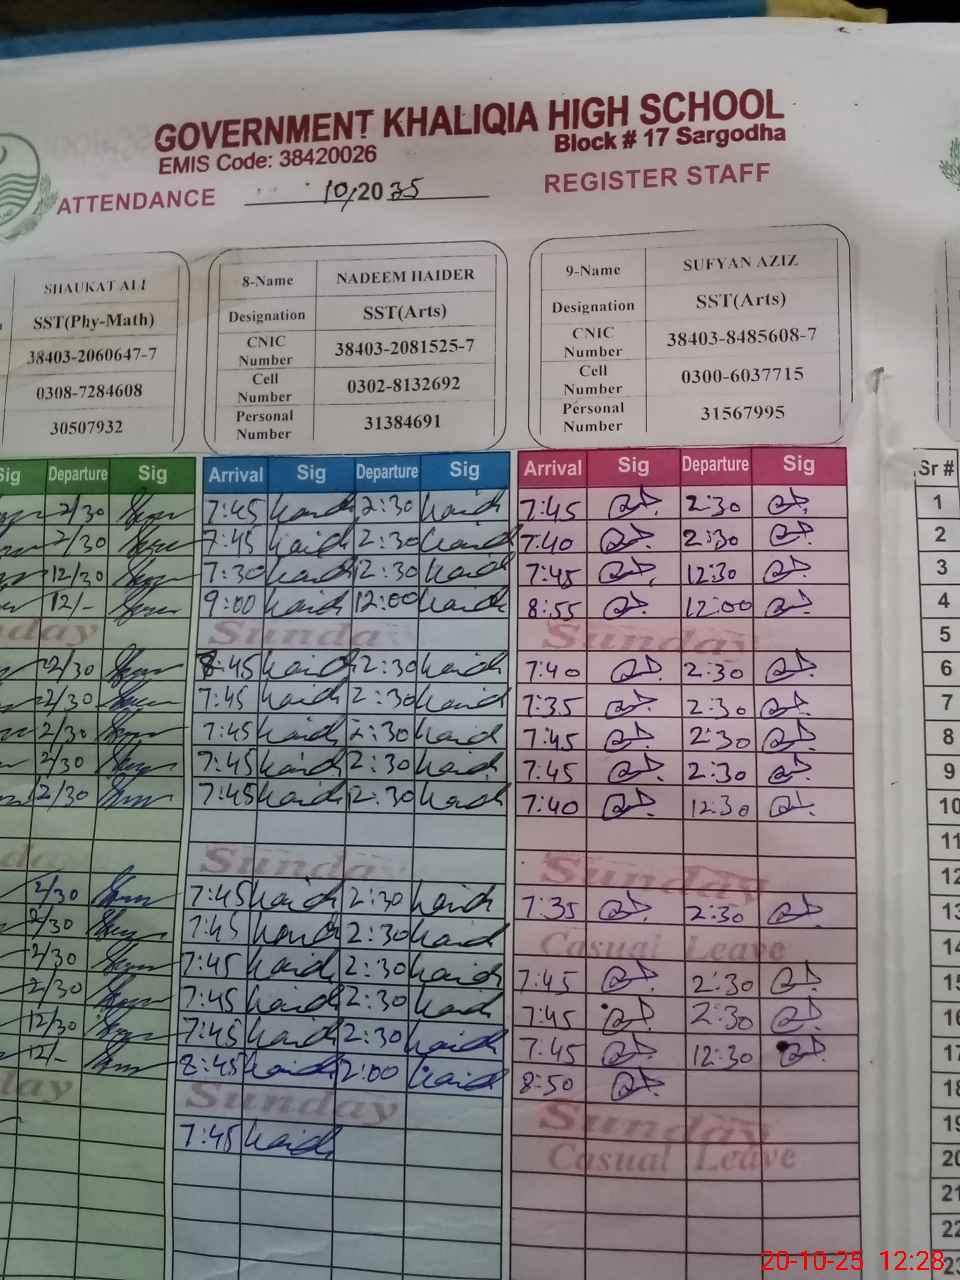 GOVERNMENT KHALIQIA HIGH SCHOOL
EMIS Code: 38420026
Block # 17 Sargodha
ATTENDANCE 10/2025 REGISTER STAFF
SHAUKAT ALI
SST(Phy-Math)
38403-2060647-7
0308-7284608
30507932
8-Name NADEEM HAIDER
Designation SST(Arts)
CNIC Number 38403-2081525-7
Cell Number 0302-8132692
Personal Number 31384691
9-Name SUFYAN AZIZ
Designation SST(Arts)
CNIC Number 38403-8485608-7
Cell Number 0300-6037715
Personal Number 31567995
Sig Departure Sig Arrival Sig Departure Sig Arrival Sig Departure Sig Sr #
2/30 7:45 Haidr 2:30 Haidr 7:45 2:30 1
2/30 7:45 Haidr 2:30 Haidr 7:40 2:30 2
12/30 7:30 Haidr 12:30 Haidr 7:45 12:30 3
12/- 9:00 Haidr 12:00 Haidr 8:55 12:00 4
Sunday Sunday Sunday 5
2/30 8:45 Haidr 2:30 Haidr 7:40 2:30 6
2/30 7:45 Haidr 2:30 Haidr 7:35 2:30 7
2/30 7:45 Haidr 2:30 Haidr 7:45 2:30 8
2/30 7:45 Haidr 2:30 Haidr 7:45 2:30 9
12/30 7:45 Haidr 12:30 Haidr 7:40 12:30 10
11
Sunday Sunday Sunday 12
2/30 7:45 Haidr 2:30 Haidr 7:35 2:30 13
2/30 7:45 Haidr 2:30 Haidr Casual Leave 14
2/30 7:45 Haidr 2:30 Haidr 7:45 2:30 15
2/30 7:45 Haidr 2:30 Haidr 7:45 2:30 16
12/30 7:45 Haidr 12:30 Haidr 7:45 12:30 17
12/- 8:45 Haidr 12:00 Haidr 8:50 18
Sunday Sunday Sunday 19
7:45 Haidr Casual Leave 20
21
22
23
20-10-25 12:28